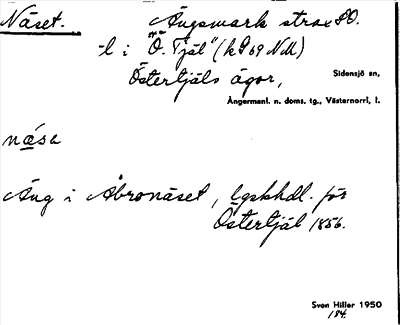 Näset. Ängsmark strax SO.
-l i "Ö. Tjäl" (k 69 NM)
Östertjäls ägor, Sidensjö sn,
Ångermanl. n. doms. tg., Västernorrl, l.
näsa
Äng i Åbronäset, lgskhdl. för
Östertjäl 1856.
Sven Hiller 1950
184.